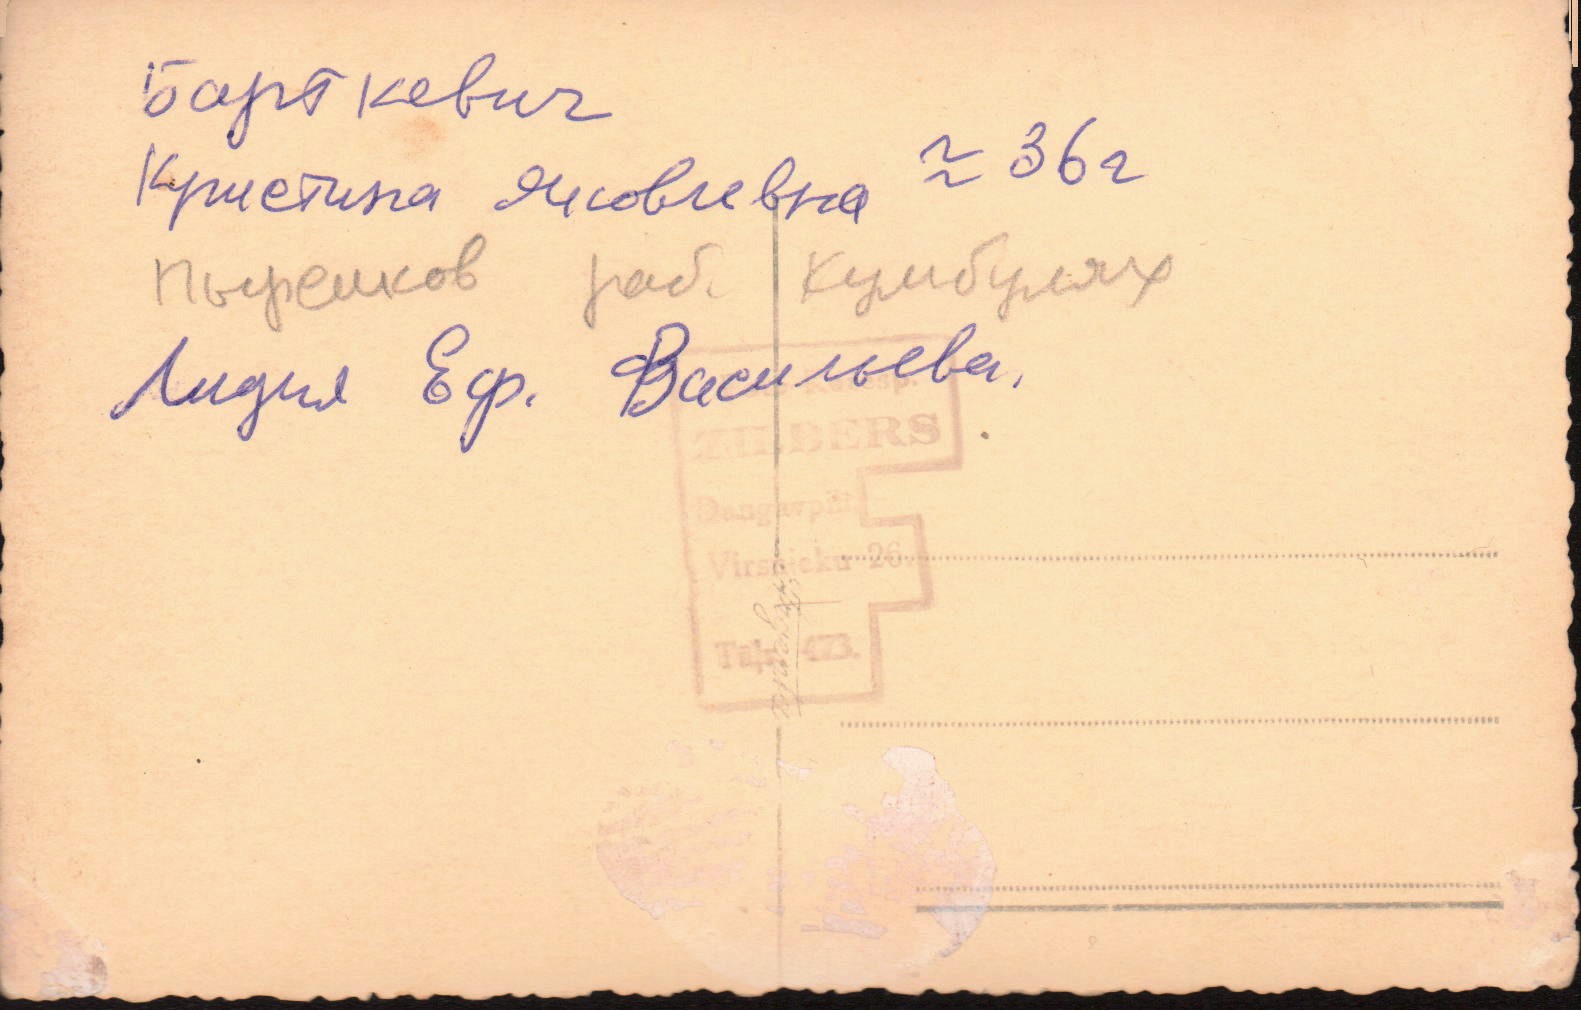 Барткевич
Кристина Яковлевна ≈ 36 г
Пыренков раб. Кумбулях
Лидия Еф. Васильева.
ZILBERS
Daugavpilī,
Virsnieku 26.
Tālr. 473.